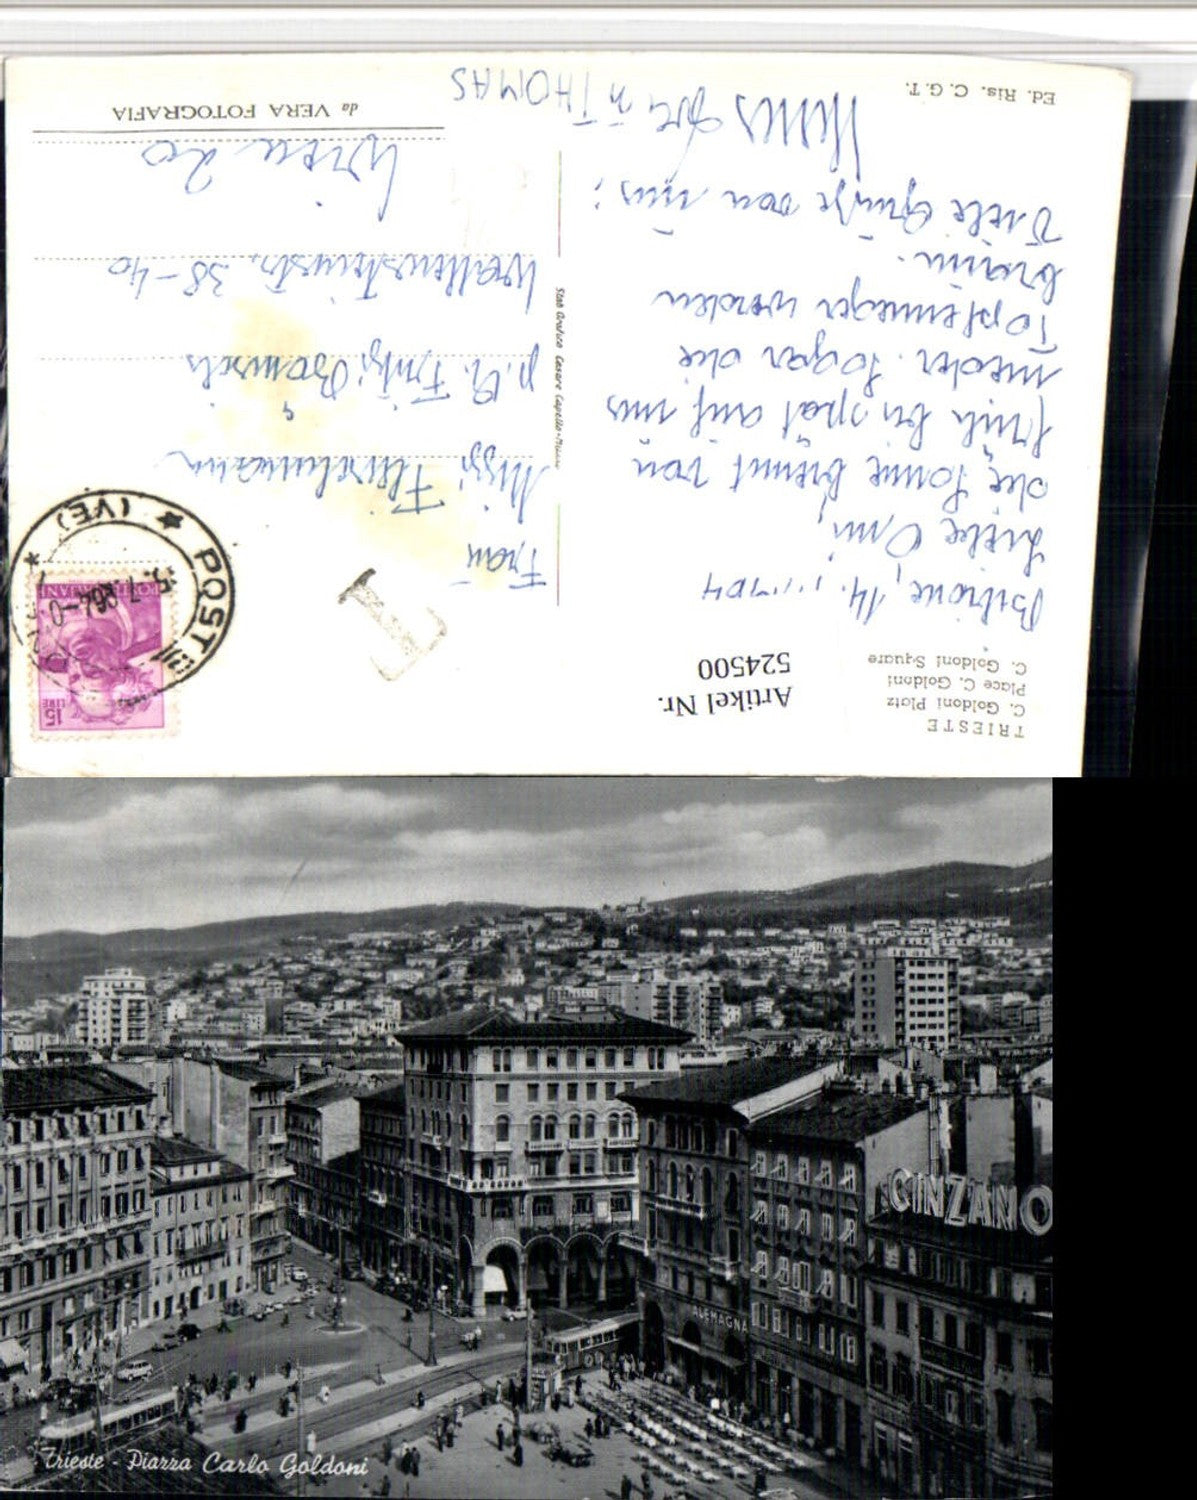 TRIESTE
C. Goldoni Platz
Place C. Goldoni
C. Goldoni Square
Artikel Nr.
524500
Bibione, 14.
Liebe Omi,
die Sonne brennt von
früh bis spät auf uns
nieder. Sogar die
Topfenneger werden
braun.
Viele Grüße von uns:
THOMAS
Ed. Ris. C. G. T.
Stab. Grafico Cesare Capello - Milano
T
15 LIRE
POSTE
(VE)
Frau
Mizzi
p. A. Fritzi
Wallensteinstr. 38-40
Wien 20
da VERA FOTOGRAFIA
CINZANO
ALEMAGNA
Trieste - Piazza Carlo Goldoni